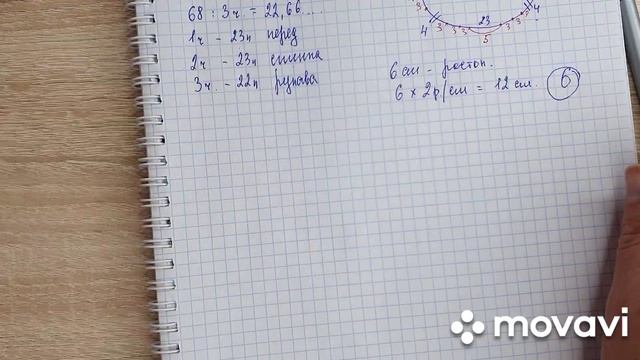 68 : 3ч. = 22,66....
1ч - 23п перед
2ч - 23п спинка
3ч. - 22п рукава
3 4 3 3 3 23 5 3 3 3 4
6 см - росток.
6 × 2р/см = 12 см. 6
movavi